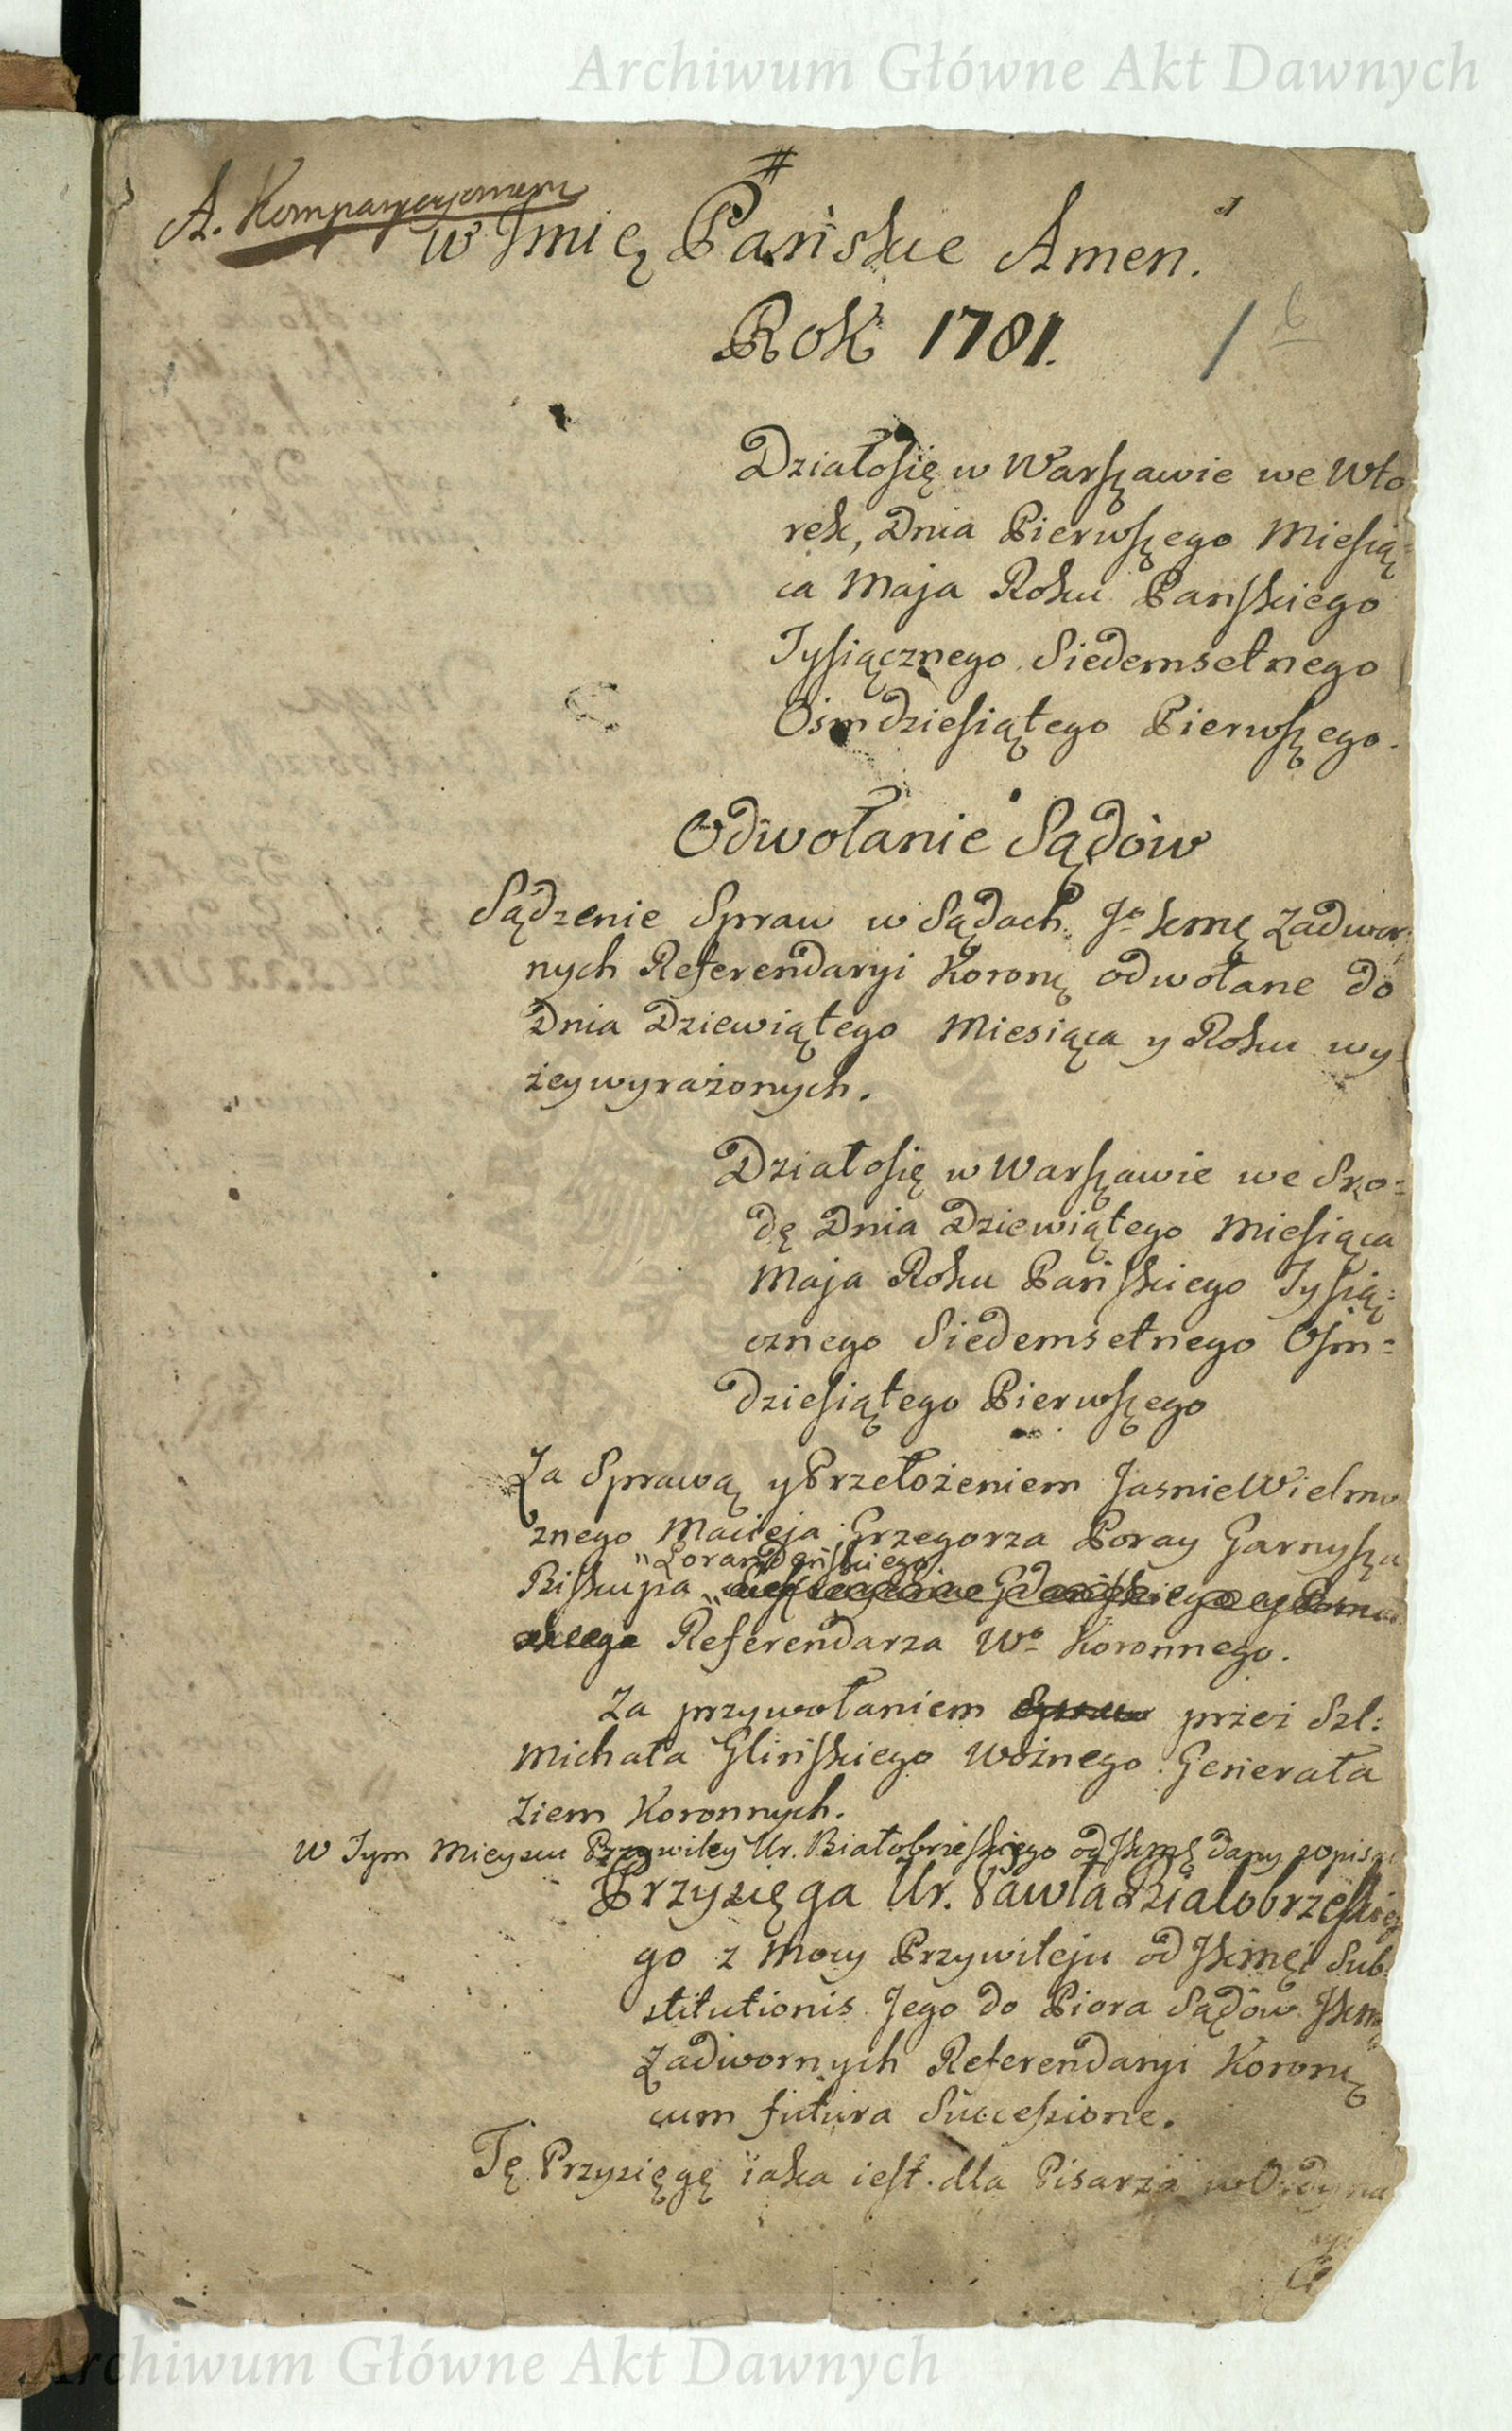 Archiwum Główne Akt Dawnych
#
w Imię Pańskie Amen.
Rok 1781.
1
6
Działosię w Warszawie we Wto
rek, Dnia Pierwszego Miesią=
ca Maja Roku Pańskiego
Tysiącznego Siedemsetnego
Ośmdziesiątego Pierwszego.
Odwołanie Sądów
Sądzenie Spraw w Sądach Jo Kmę Zadwor=
nych Referendaryi Koronę odwołane do
Dnia Dziewiątego Miesiąca y Roku wy=
żeywyrażonych.
Działosię w Warszawie we Szro=
dę Dnia Dziewiątego Miesiąca
Maja Roku Pańskiego Tysią=
cznego Siedemsetnego Ośm=
dziesiątego Pierwszego
Za Sprawą y Przełożeniem JasnieWielmo
żnego Macieja Grzegorza Poray Garnysza
Biskupa
Referendarza Wo Koronnego.
Za przywołaniem przez Szl:
Michała Glińskiego Woźnego Generała
Ziem Koronnych.
W Tym Mieyscu Przywiley Ur. Białobrzeskiego od JKmę dany wpisać
Przysięga Ur. Pawła Białobrzeskie
go z Mocy Przywileju od JKmęi Sub=
stitutionis Jego do Piora Sądow JKmę
Zadwornych Referendaryi Koronę
cum futura Successione.
Tę Przysięgę iaka iest dla Pisarza w Ordyna
Archiwum Główne Akt Dawnych